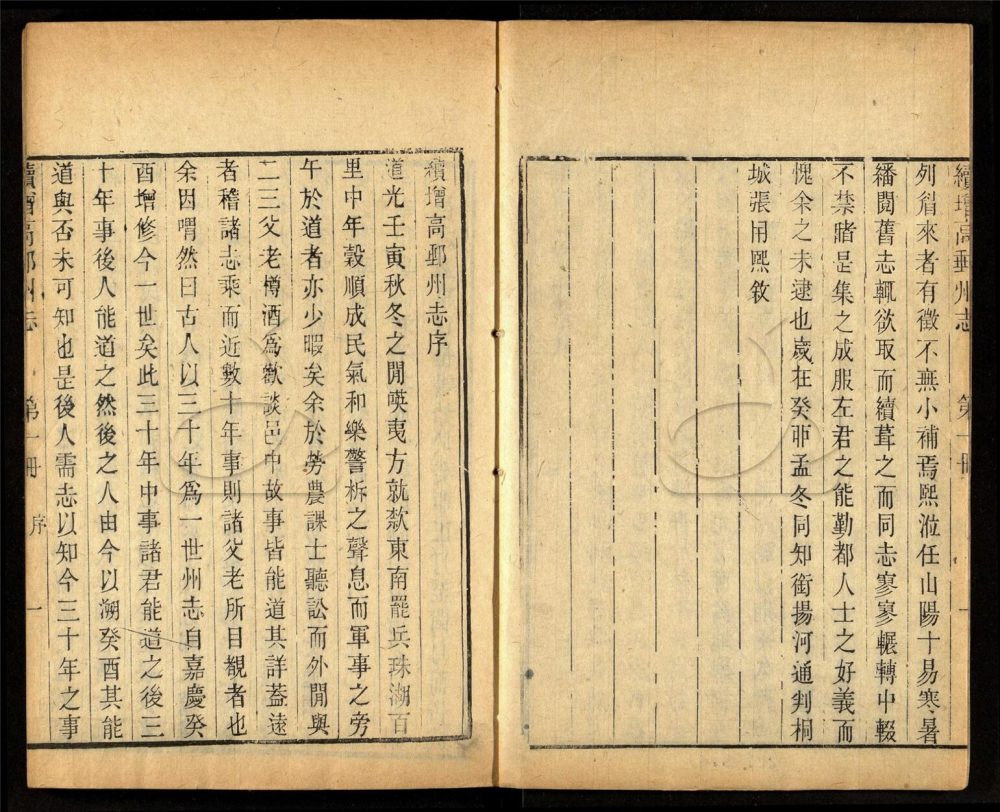 續增高郵州志　第一冊
列眉來者有徵不無小補焉熙涖任山陽十易寒暑
繙閱舊志輒欲取而續葺之而同志寥寥輾轉中輟
不禁睹是集之成服左君之能勤都人士之好義而
愧余之未逮也歲在癸卯孟冬同知銜揚河通判桐
城張用熙敘
續增高郵州志序
道光壬寅秋冬之閒㗲夷方就欵東南罷兵珠湖百
里中年穀順成民氣和樂警柝之聲息而軍事之旁
午於道者亦少暇矣余於勞農課士聽訟而外閒與
二三父老樽酒爲歡談邑中故事皆能道其詳葢遠
者稽諸志乘而近數十年事則諸父老所目覩者也
余因喟然曰古人以三十年爲一世州志自嘉慶癸
酉增修今一世矣此三十年中事諸君能道之後三
十年事後人能道之然後之人由今以溯癸酉其能
道與否未可知也是後人需志以知今三十年之事
續增高郵州志　第一冊　序　一